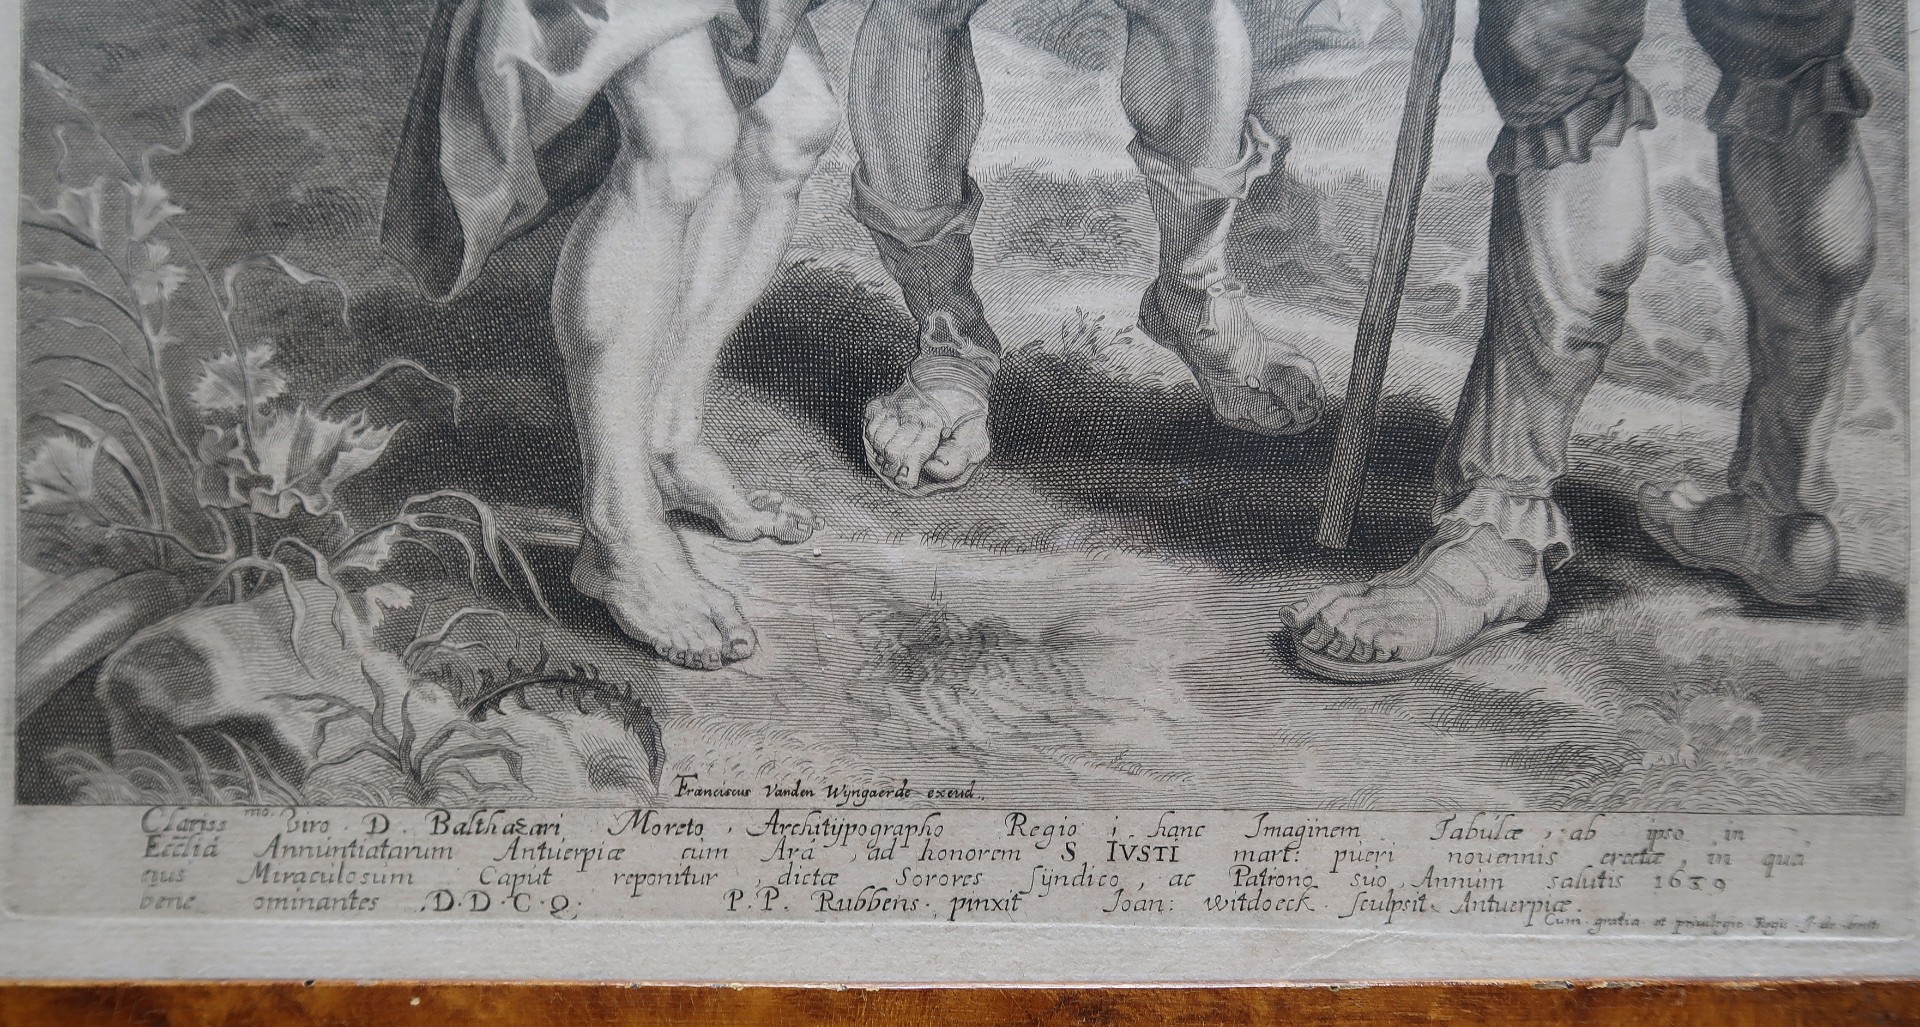 Franciscus Vanden Wÿngaerde excud.
Clariss mo. Viro. D. Balthazari Moreto, Architÿpographo Regio; hanc Imaginem Tabulæ, ab ipso in
Ecclia Annuntiatarum Antuerpiæ cum Ara, ad honorem S IVSTI mart: pueri nouennis erectæ, in qua
eius Miraculosum Caput reponitur, dictæ Sorores sÿndico, ac Patrono suo, Annum salutis 1639
bene ominantes .D.D.C.Q. P.P. Rubbens. pinxit Ioan: witdoeck. sculpsit. Antuerpiæ.
Cum gratia et privilegio Regis